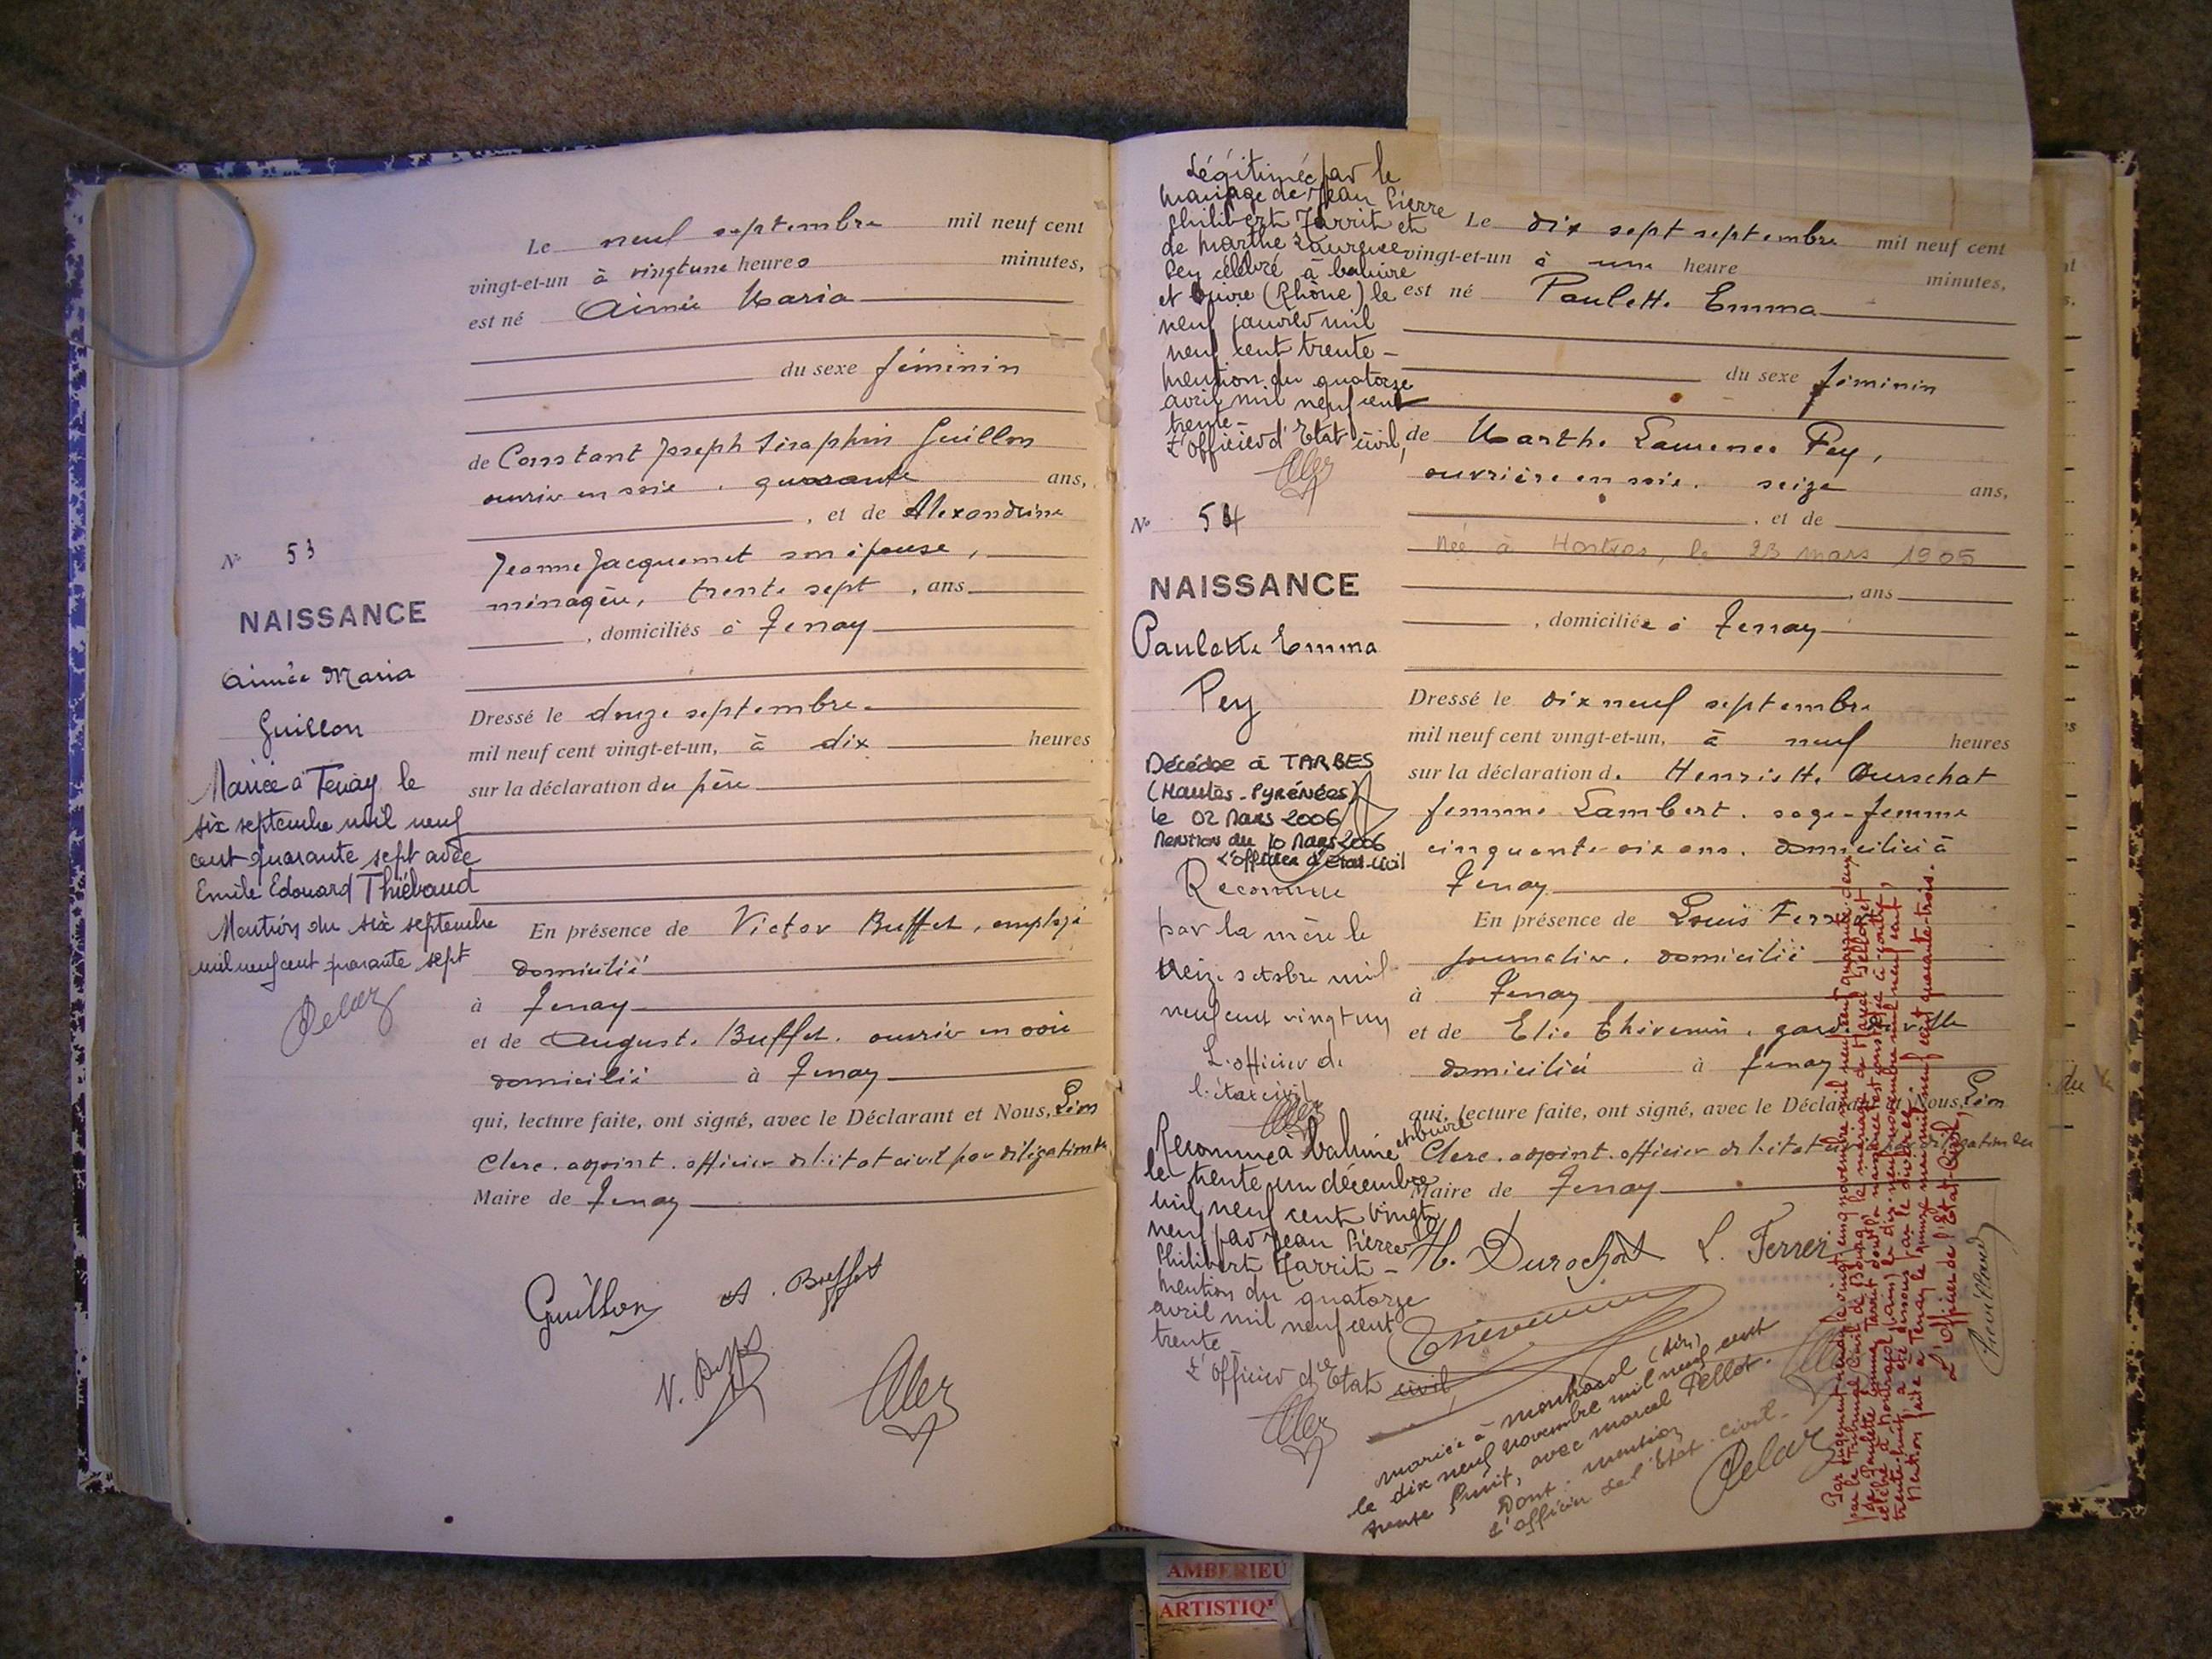 Le neuf septembre mil neuf cent
vingt-et-un à vingtune heures minutes,
est né Aimée Maria
du sexe féminin
de Constant Joseph Séraphin Guillon
ouvrier en soie, quarante ans,
, et de Alexandrine
Jeanne Jacquemet son épouse,
ménagère, trente sept , ans
, domiciliés à Tenay
Dressé le douze septembre
mil neuf cent vingt-et-un, à dix heures
sur la déclaration du père
En présence de Victor Buffet, employé
domicilié
à Tenay
et de Auguste Buffet, ouvrier en soie
domicilié à Tenay
qui, lecture faite, ont signé, avec le Déclarant et Nous, Léon
Clerc, adjoint, officier de l'état civil par délégation du
Maire de Tenay
Guillon
A. Buffet
V. Buffet
Clerc
N° 53
NAISSANCE
Aimée Maria
Guillon
Mariée à Tenay le
six septembre mil neuf
cent quarante sept avec
Emile Edouard Thiébaud
Mention du six septembre
mil neuf cent quarante sept
Légitimée par le
mariage de Jean Pierre
Philibert Tarrit et
de Marthe Laurence
Pey célébré à Caluire
et Cuire (Rhône) le
neuf janvier mil
neuf cent trente -
Mention du quatorze
avril mil neuf cent
trente -
L'officier d'Etat civil,
N° 54
NAISSANCE
Paulette Emma
Pey
Décédée à TARBES
(Hautes-Pyrénées)
le 02 Mars 2006
Mention du 10 Mars 2006
L'officier d'Etat Civil
Reconnue
par la mère le
treize octobre mil
neuf cent vingt un
L'officier de
l'état civil
Reconnue à Caluire et Cuire
le trente un décembre
mil neuf cent vingt
neuf par Jean Pierre
Philibert Tarrit -
Mention du quatorze
avril mil neuf cent
trente
L'officier d'Etat civil
Le dix sept septembre mil neuf cent
vingt-et-un à une heure minutes,
est né Paulette Emma
du sexe féminin
de Marthe Laurence Pey,
ouvrière en soie, seize ans,
, et de
née à Hostias, le 23 mars 1905
, ans
, domiciliée à Tenay
Dressé le dix neuf septembre
mil neuf cent vingt-et-un, à neuf heures
sur la déclaration de Henriette Durochat
femme Lambert, sage-femme
cinquante six ans, domiciliée à
Tenay
En présence de Louis Ferrer
journalier, domicilié
à Tenay
et de Elie Thivenin, garde de ville
domicilié à Tenay
qui, lecture faite, ont signé, avec le Déclarant et Nous, Léon
Clerc, adjoint, officier de l'état civil par délégation du
Maire de Tenay
H. Durochat L. Ferrer
Thivenin
mariée à Montracol (Ain)
le dix neuf novembre mil neuf cent
trente huit, avec Marcel Pellot.
Dont mention
L'officier de l'Etat-civil -
Par jugement rendu le vingt cinq novembre mil neuf cent quarante deux
par le Tribunal Civil de Bourg, le mariage de Marcel Pellot et
de Paulette Emma Tarrit dont la naissance est constatée ci-contre,
célébré à Montracol (Ain) le dix neuf novembre mil neuf cent
trente-huit, a été dissous par le divorce.
Mention faite à Tenay le quinze mai mil neuf cent quarante-trois.
L'Officier de l'Etat-Civil,
AMBERIEU
ARTISTIQ